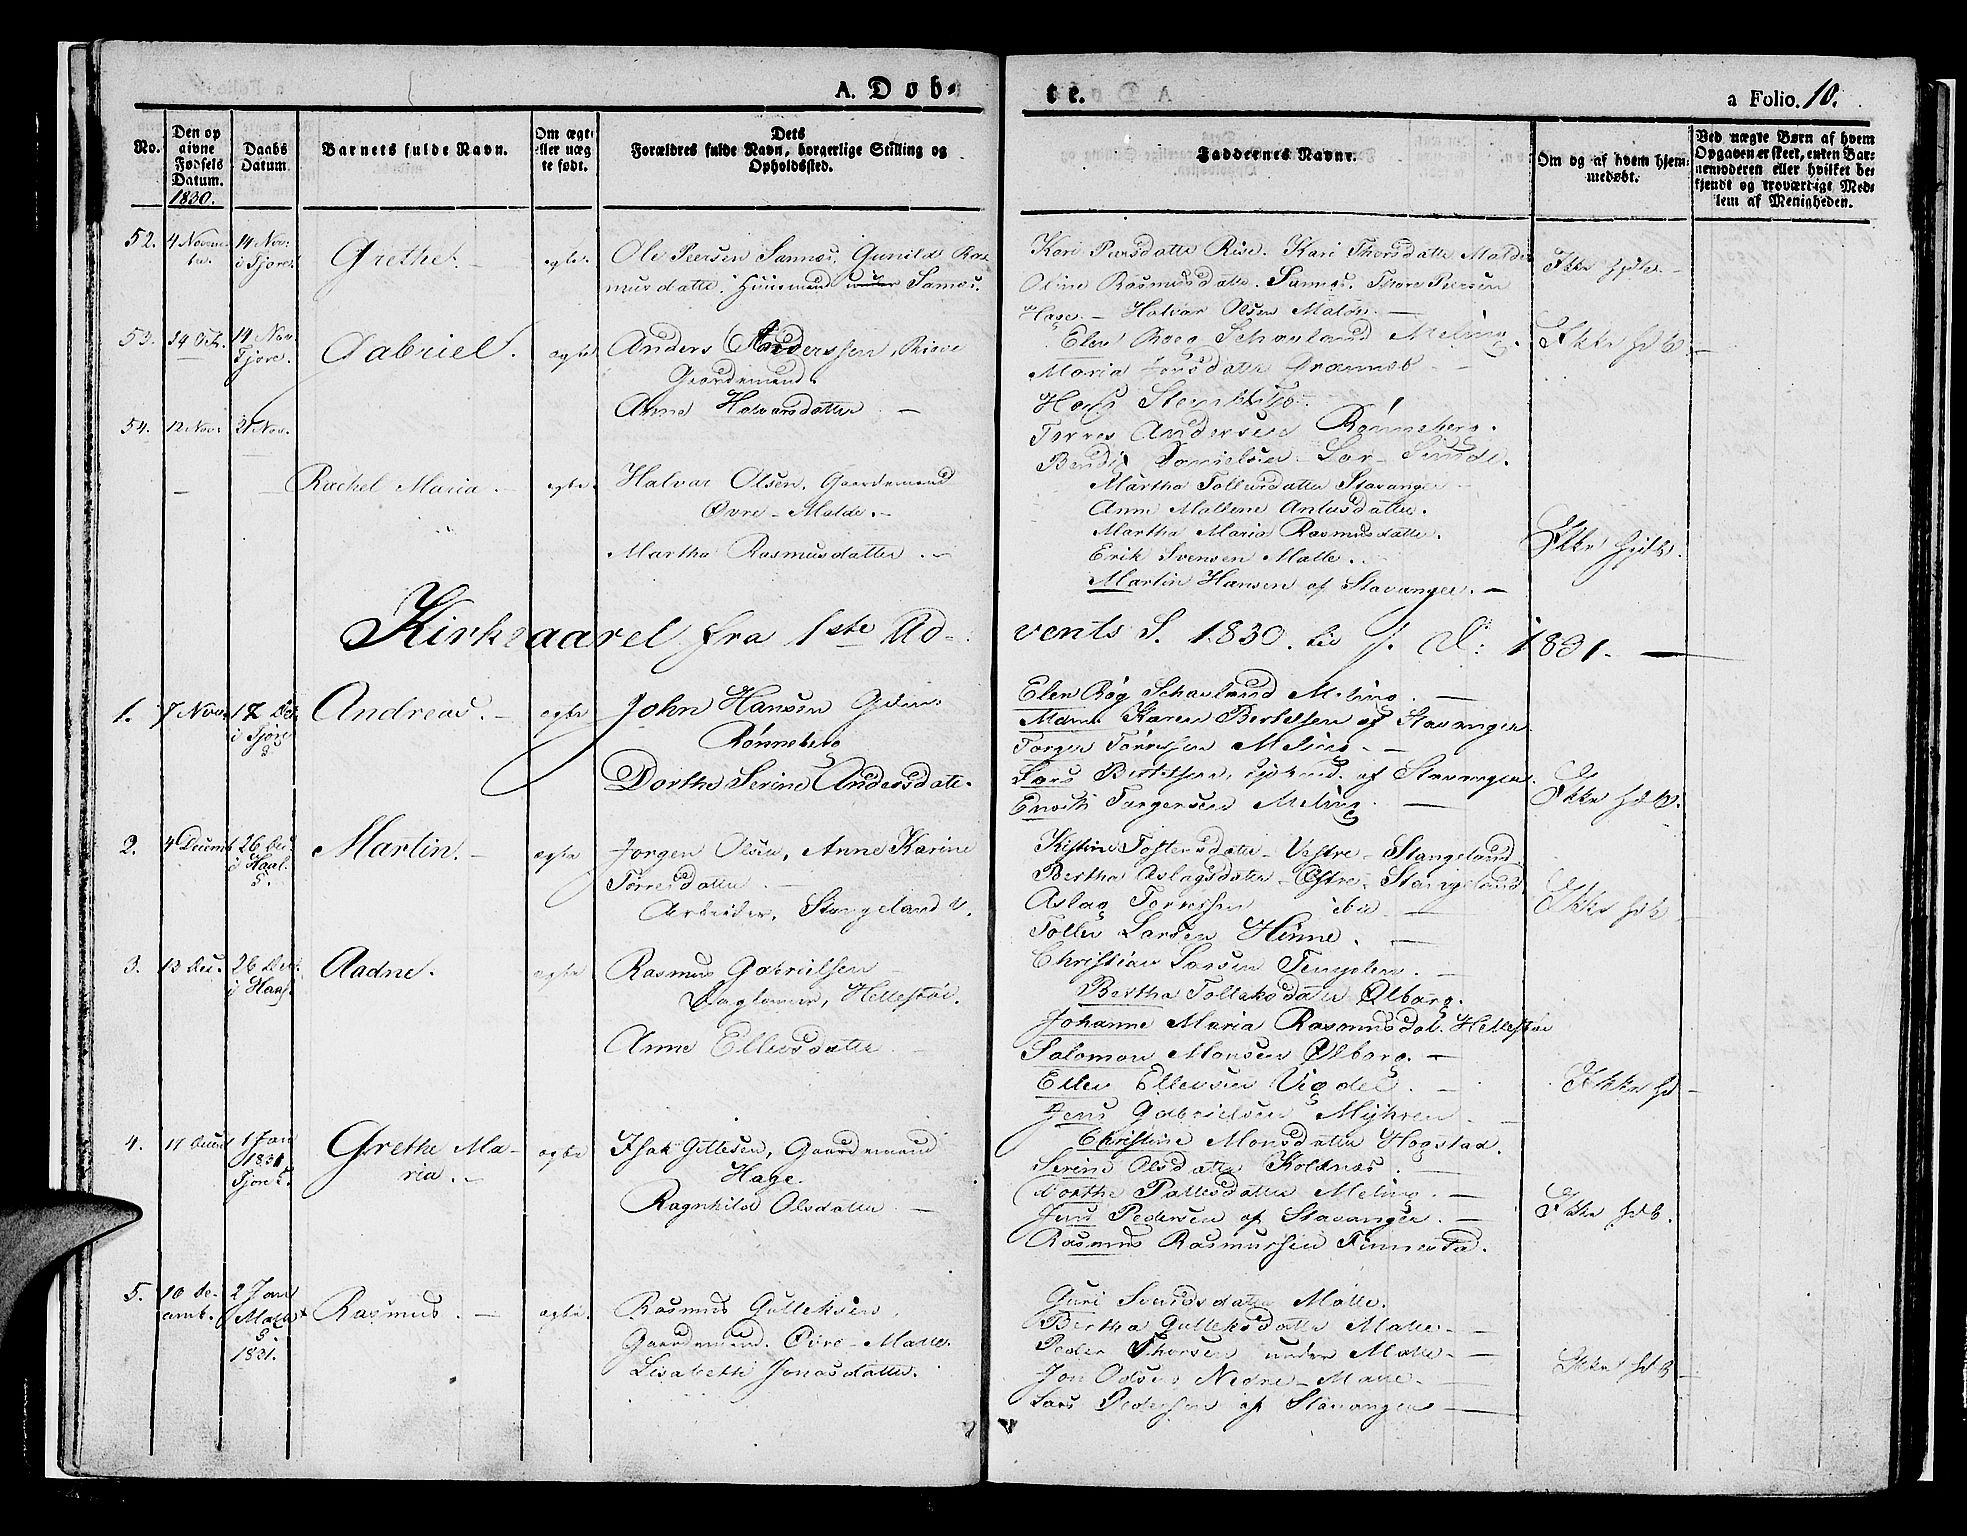 A. Døb-
te.
a Folio. 10.
No.
Den op
givne
Fødsels
Datum.
1830.
Daabs
Datum
Barnets fulde Navn.
Om ægte
eller uæg
te født.
Dets
Forældres fulde Navn, borgerlige Stilling og
Opholdssted.
Faddernes Navne.
Om og af hvem hjem-
medøbt.
Ved uægte Børn af hvem
Opgaven er skeet, enten Bar-
nemoderen eller hvilket be-
kjendt og troværdigt Med-
lem af Menigheden.
52. 4 Novem-
ber
14 Nov:
i Tjore.
Grethe. -
egte.
Ole Peersen Sannes, Gunild Ras-
musdatter. Huusmand under Sannes.
Kari Peersdatter Rise. Kari Thorsdatter Malde
Oline Rasmusdatter Sannes. Thore Peersen
Hage. - Halvar Olsen Malde. -
Ikke hjdb. -
53. 14 Oct.
14 Nov.
Tjore.
Gabriel.
egte
Anders Anderssen, Risne
Gaardmand.
Anne Halvarsdatter -
Elen Roeg Schavland Meling.
Maria Jonsdatter Grannes
Torres Andersen Rønneberg.
Bendix Danielsen Sør-Sunde.
Ikke hdb. -
54. 12 Nov.
21 Nov.
Rachel Maria. -
egte.
Halvar Olsen. Gaardmand
Øvre-Malde. -
Martha Rasmusdatter. -
Martha Tollesdatter Stavanger
Anne Mallene
Martha Maria Rasmusdatter.
Erik Svensen Malle.
Martin Hansen af Stavanger. -
Ikke hjdb.
Kirkeaaret fra 1ste Ad-
vents S. 1830. til s. D: 1831. -
1. 7 Nov.
12 Dec.
i Tjore
Andreas. -
egte
John Hansen
Rønneberg
Dorthe Serine Andersdatter.
Elen Røg Schavland Meling. -
Mdme Karen Bertelsen af Stavanger
Torger Tørressen Meling. -
Lars Bertelsen, af Stavanger.
Enoch Torgersen Meling. -
Ikke hdb.
2. 4 Decemb
26 Dec.
i Haaland
Martin. -
egte
Jorgen Olsen, Anne Karine
Torresdatter. -
Arbeider, Stangeland V.
Kistine Tostensdatter - Vestre - Stangeland.
Bertha Aslagsdatter - Østre - Stangeland
Aslag Torressen ibid -
Tolle Larsen Hinne. -
Christian Larsen Tengelen. -
Ikke hdb -
3. 13 Dec.
26 Dec.
i Haal.
Aadne.
egte
Rasmus Gabrielsen
Daglønner, Hellestøe.
Anne Ellersdatter -
Bertha Tolleksdatter Ølborg.
Johanne Maria Rasmusdat. Hellestøe
Salomon Monsen Ølborg. -
Eller Ellersen Vigdel. -
Jens Gabrielsen Myhren -
Ikke hd -
4. 11 Decemb
1 Jan
1831
Tjore
Grethe Ma-
ria. -
egte
Isak Gittesen, Gaardmand
Hage.
Ragnhild Olsdatter. -
Christine Monsdatter Hogstad.
Serine Olsdatter Kolknæs. -
Dorthe Pallesdatter Meling. -
Jens Pedersen af Stavanger. -
Rasmus Rasmussen Finnestad.
Ikke hdb.
5. 10 De-
cemb.
2 Jan
Malle
1831.
Rasmus. -
egte.
Rasmus Gulleksen
Gaardmand. Øvre-Malle.
Lisabeth Jonasdatter.
Guri Svendsdatter Malle.
Bertha Gulleksdatter Malle -
Peder Thorsen under Malle -
Jon Odsen Nedre-Malle. -
Lars Pedersen af Stavanger -
Ikke hdb -